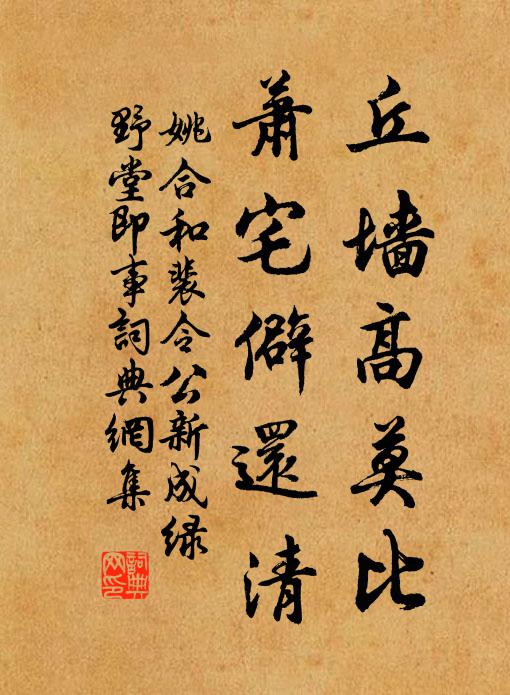 丘墙高莫比
萧宅僻還清
姚合和裴令公新成绿
野堂即事詞典網集
詞典
网印